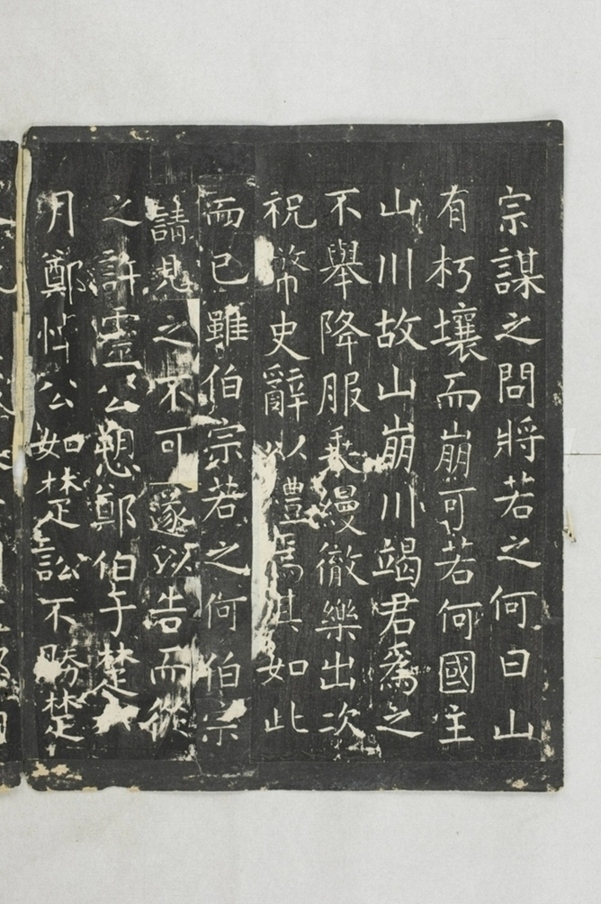 宗謀之問將若之何曰山
有朽壤而崩可若何國主
山川故山崩川竭君為之
不舉降服乘縵徹樂出次
祝幣史辭以禮焉其如此
而已雖伯宗若之何伯宗
請見之不可遂以告而從
之許靈公愬鄭伯于楚六
月鄭悼公如楚訟不勝楚